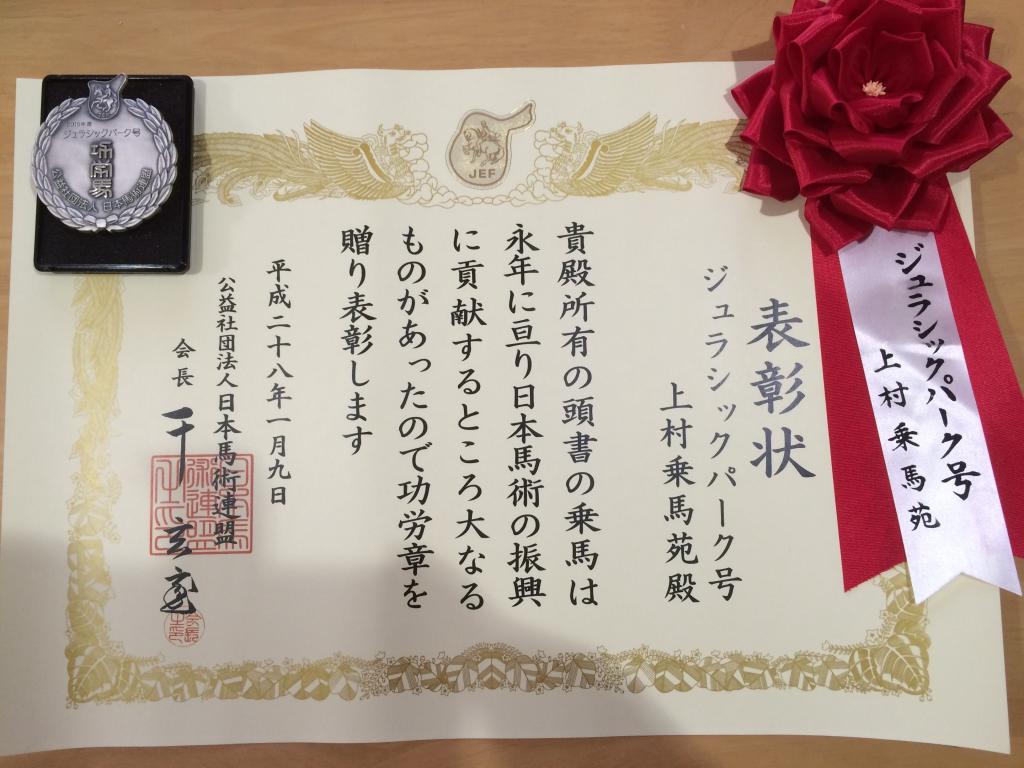 JEF
表彰状
ジュラシックパーク号
上村乗馬苑殿
貴殿所有の頭書の乗馬は
永年に亘り日本馬術の振興
に貢献するところ大なる
ものがあったので功労章を
贈り表彰します
平成二十八年一月九日
公益社団法人日本馬術連盟
会長 千 玄室
ジュラシックパーク号
上村乗馬苑
2015年度
ジュラシックパーク号
功労章
公益社団法人 日本馬術連盟